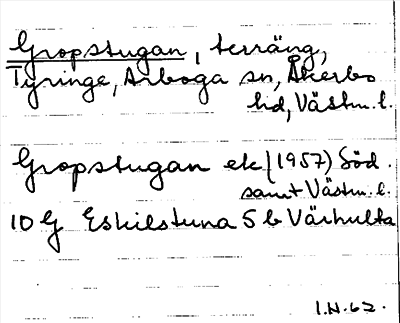 Gropstugan, terräng,
Tyringe, Arboga sn, Åkerbo
hd, Västm. l.
Gropstugan ek (1957) Söd.
samt Västm. l.
10 G Eskilstuna 5 b Värhulta
I.N. 62.